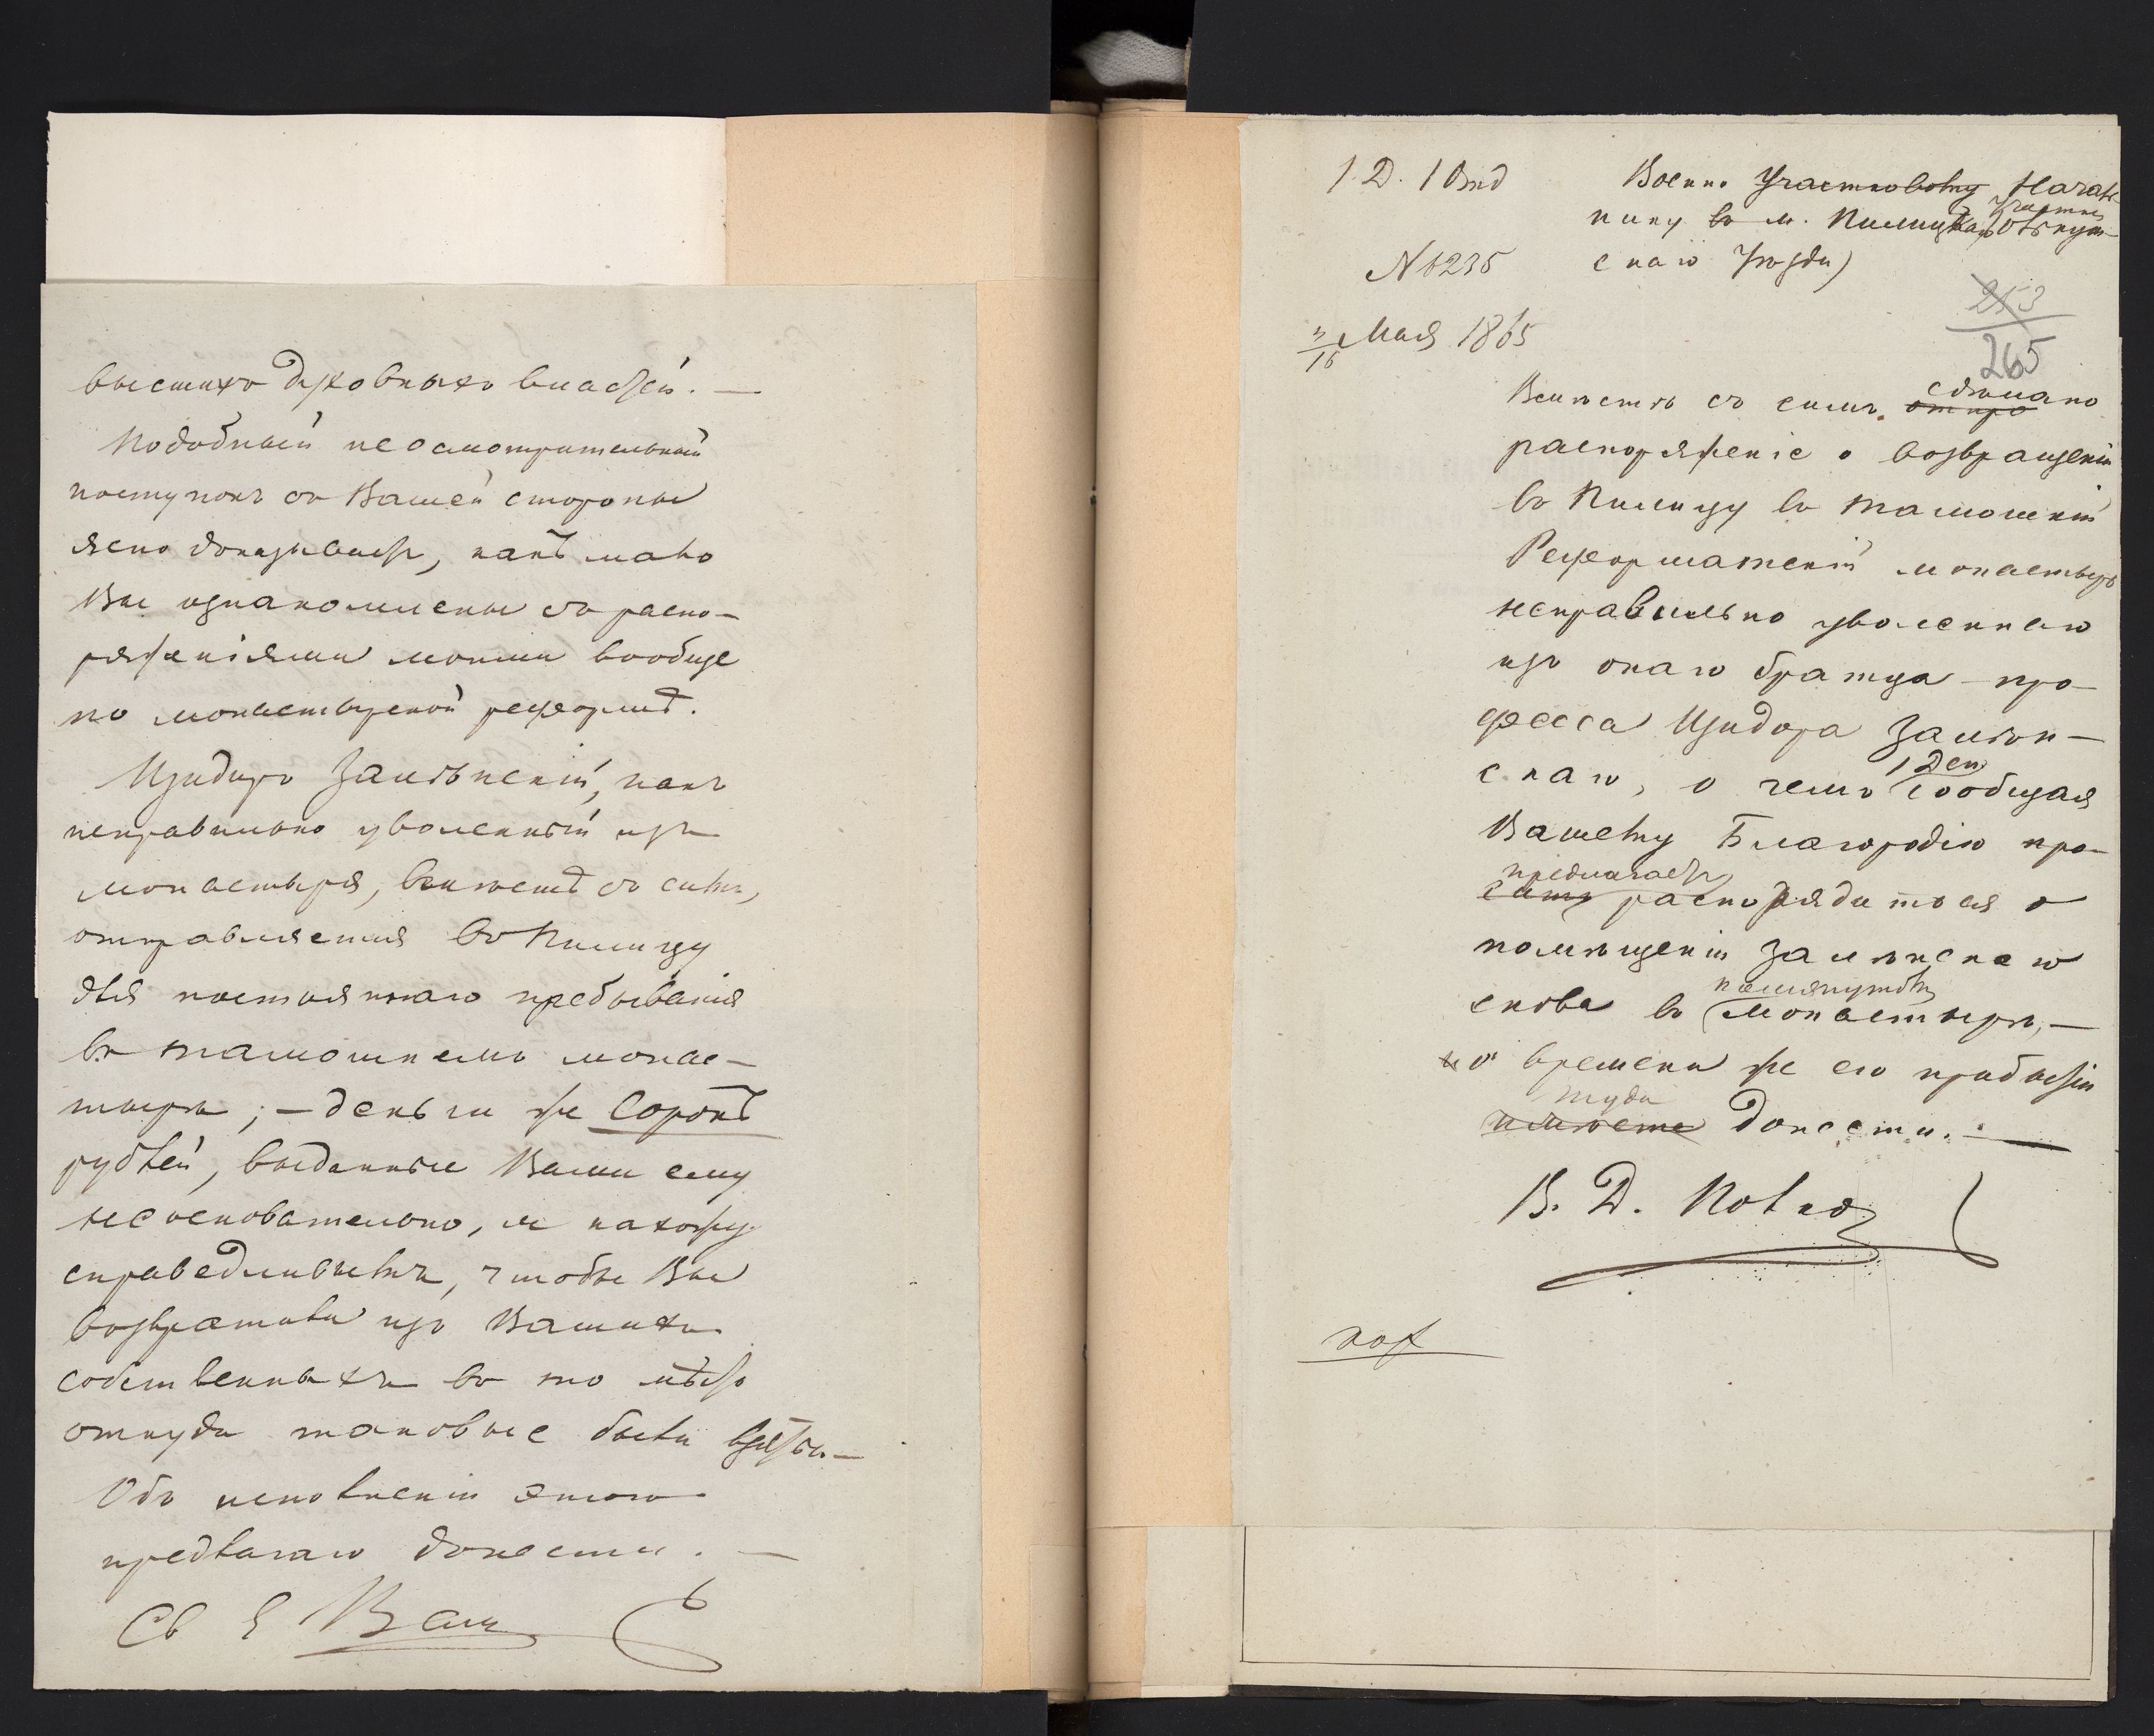 высшихъ духовныхъ властей. —
Подобный неосмотрительный
поступокъ съ Вашей стороны
ясно доказываетъ, какъ мало
Вы ознакомлены съ распо-
ряженіями моими вообще
по монастырской реформѣ.
Изидоръ Замѣнскій, какъ
неправильно уволенный изъ
монастыря, вмѣстѣ съ симъ,
отправляется въ Пилицу
для постояннаго пребыванія
въ тамошнемъ монас-
тырѣ; — деньги же сорокъ
рублей, выданные Вами ему
неосновательно, я нахожу
справедливымъ, чтобы Вы
возвратили изъ Вашихъ
собственныхъ въ то мѣсто
откуда таковые были взяты. —
Объ исполненіи этого
предлагаю донести. —
1. Д. 1 Отд
Военно Участковому Началь-
нику въ м. Пилицкаго участка Олькуш-
скаго Уѣзда)
№ 1235
3/15 Мая 1865
253
265
Вмѣстѣ съ симъ сдѣлано
распоряженіе о возвращеніи
въ Пилицу въ тамошній
Реформатскій монастырь
неправильно уволеннаго
изъ онаго братца-про-
фесса Изидора Замѣн-
скаго, о чемъ 1 Деп
сообщая
Вашему Благородію про-
предлагаетъ
ситъ распорядиться о
помѣщеніи Замѣнскаго
помянутый
снова въ монастырь, —
о времени же его прибытія
туда
донести. —
В. Д.